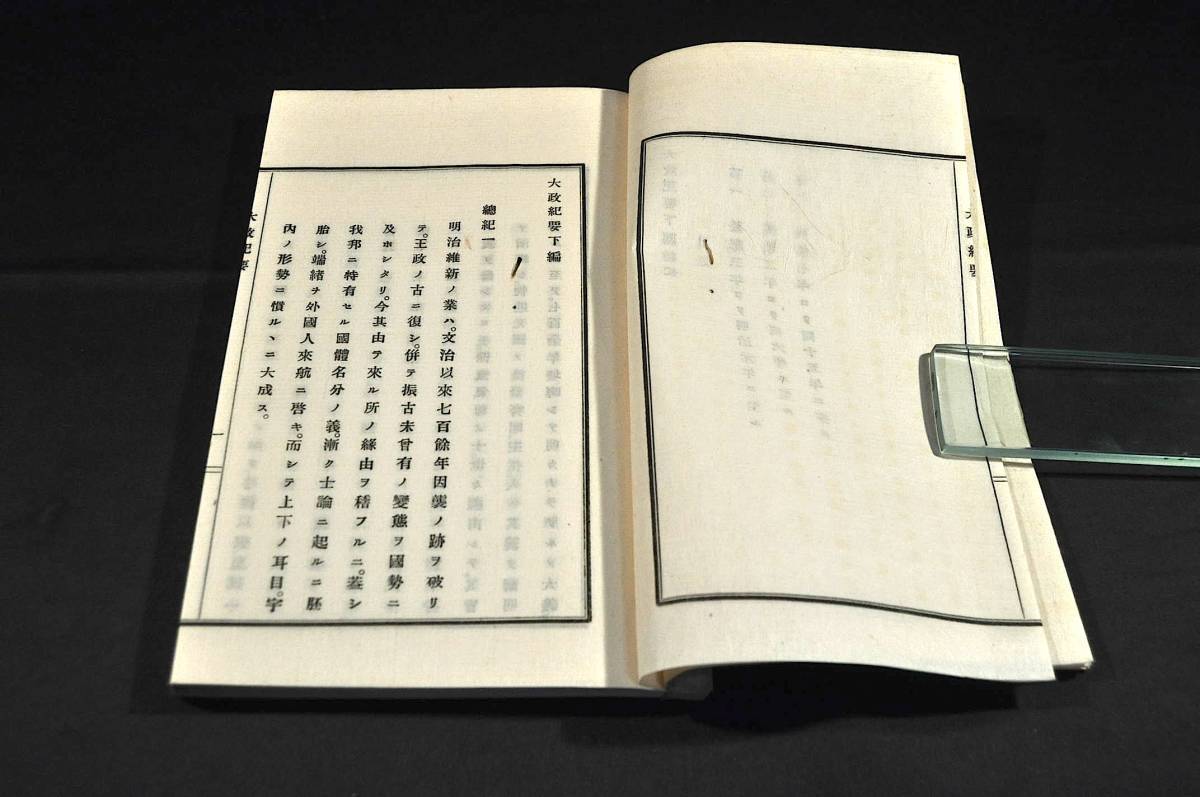 大政紀要下編
總紀一
明治維新ノ業ハ。文治以來七百餘年因襲ノ跡ヲ破リ
テ。王政ノ古ニ復シ。併テ振古未曾有ノ變態ヲ國勢ニ
及ホシタリ。今其由テ來ル所ノ緣由ヲ稽フルニ。蓋シ
我邦ニ特有セル國體名分ノ義。漸ク士論ニ起ルニ胚
胎シ。端緒ヲ外國人來航ニ啓キ。而シテ上下ノ耳目。宇
內ノ形勢ニ慣ルヽニ大成ス。
大政紀要
一
大政紀要